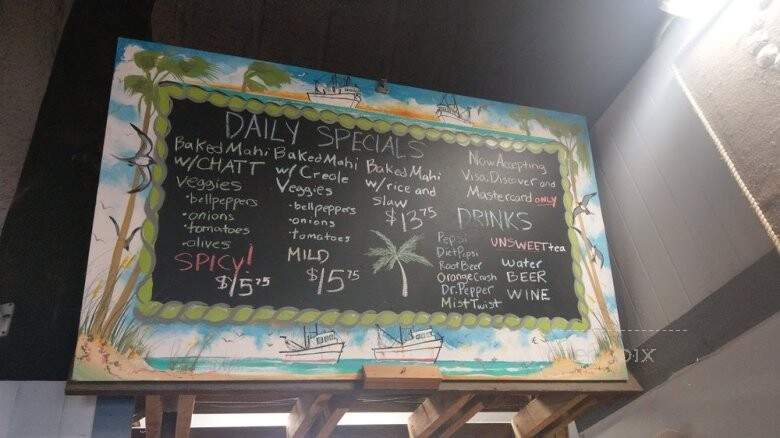 DAILY SPECIALS
Baked Mahi
w/CHATT
veggies
·bellpeppers
·onions
·tomatoes
·olives
SPICY!
$15.75
Baked Mahi
w/ Creole
Veggies
·bellpeppers
·onions
Tomatoes
MILD
$15.75
Baked Mahi
w/rice and
slaw
$13.75
Now Accepting
Visa, Discover and
Mastercard ONLY
DRINKS
Pepsi
Diet Pepsi
Root Beer
Orange Crush
Dr. Pepper
Mist Twist
UNSWEET tea
water
BEER
WINE